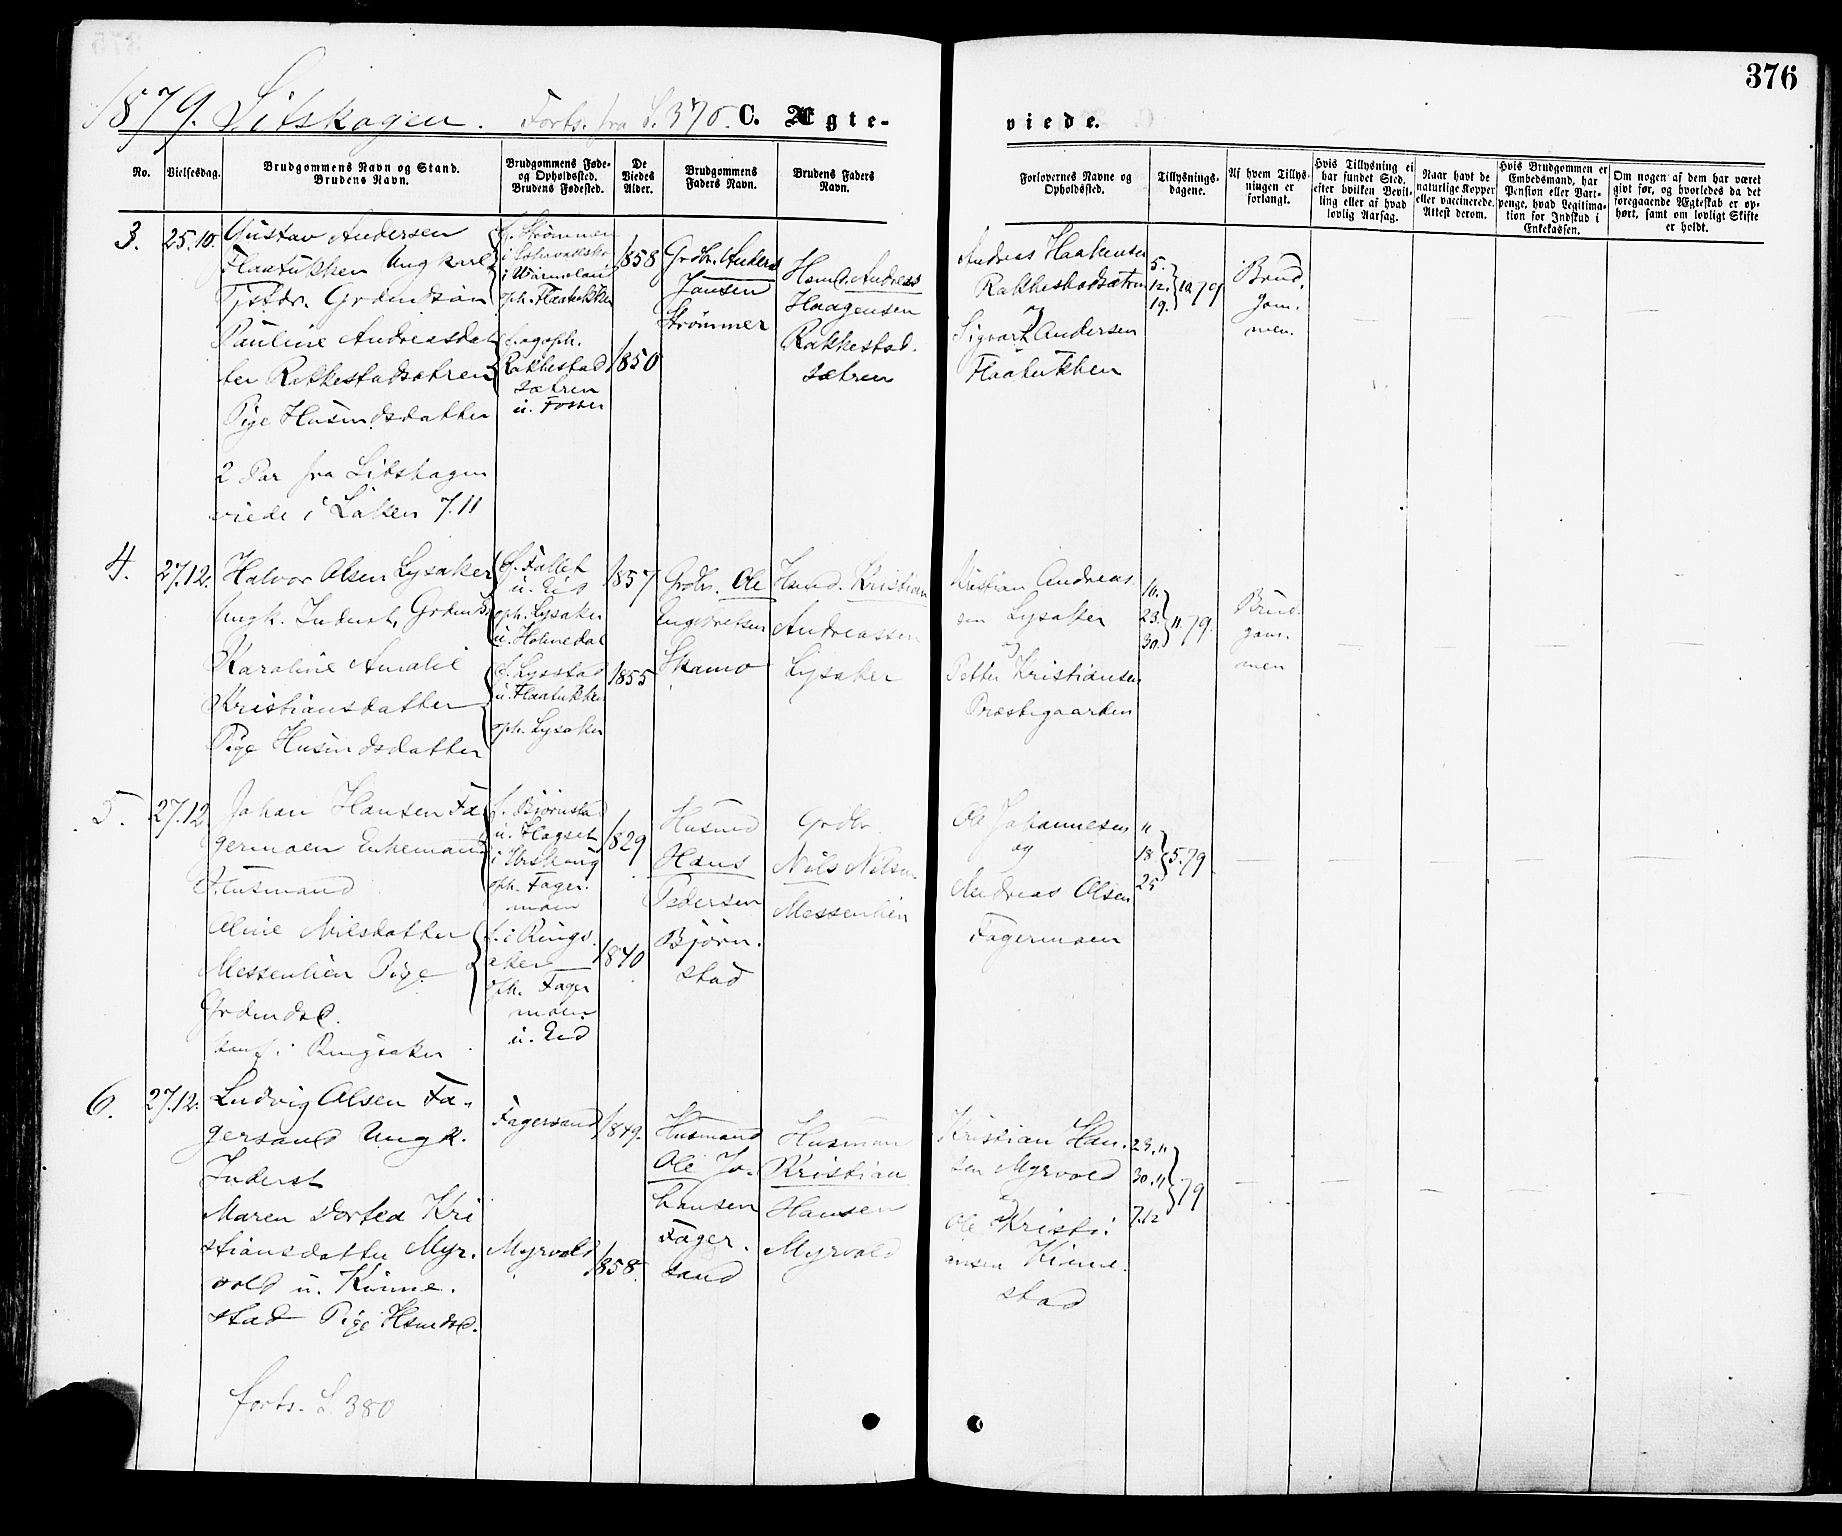 376
1879. Setskogen. Forts. fra S. 370. C. Ægte-
viede.
No.
Vielsesdag.
Brudgommens Navn og Stand.
Brudens Navn.
Brudgommens Føde-
og Opholdssted.
Brudens Fødested.
De
Viedes
Alder.
Brudgommens
Faders Navn.
Brudens Faders
Navn.
Forlovernes Navne og
Opholdssted.
Tillysnings-
dagene.
Af hvem Tillys-
ningen er
forlangt.
Hvis Tillysning ei
har fundet Sted,
efter hvilken Bevil-
ling eller af hvad
lovlig Aarsag.
Naar havt de
naturlige Kopper
eller vaccinerede.
Attest derom.
Hvis Brudgommen er
Embedsmand, har
Pension eller Vart-
penge, hvad Legitima-
tion for Indskud i
Enkekassen.
Om nogen af dem har været
gift før, og hvorledes da det
foregaaende Ægteskab er op-
hørt, samt om lovligt Skifte
er holdt.
3.
25.10.
Gustav Andersen
Flaatukken Ungkarl
Tjstdr. Grdmdsøn
Pauline Andreasdat
ter Rakkestadsætren
Pige Husmdsdatter
f. Strømmer
i Värmeland
oph. Flaatukken
f. og oph.
Rakkestad
sætren
u. Fosser
1858
1850
Grdbr. Anders
Jansen
Strømmer
Hsmd. Andreas
Haagensen
Rakkestad.
sætren
Andreas Haakensen
Rakkestadsætren
og
Sigvart Andersen
Flaatukken
5.
12.
19.
10 79
Brud.
gom.
men.
2 Par fra Setskogen
viede i Løken 7.11
4.
27.12.
Halvor Olsen Lysaker
Ungk. Inderst, Grdmds
Karoline Amalie
Kristiansdatter
Pige Husmdsdatter
f. Fallet
u. Eid
oph. Lysaker
u. Holmedal
f. Lysstad
u. Flaatukken
oph. Lysaker
1857
1855
Grdbr. Ole
Engebretsen
Skamo
Hsmd. Kristian
Andreassen
Lysaker
Kristian Andreas.
sen Lysaker
og
Petter Kristiansen
Præstegaarden
16.
23.
30.
11 79.
Brud.
gom.
men
5.
27.12.
Johan Hansen Fa
germoen Enkemand
Husmand
Oline Nilsdatter
Messenlien Pige
Grdmdsd.
konf. i Ringsaker
f. Bjørnstad
u. Hogset
i Urskoug
oph. Fager.
moen
f. i Rings.
aker
oph. Fager
moen
u. Eid
1829
1840
Husmd
Hans
Pedersen
Bjørn.
stad
Grdbr
Nils Nilsen
Messenlien
Ole Johannesen
og
Andreas Olsen
Fagermoen
11
18
25
5.79.
6.
27.12.
Ludvig Olsen Fa.
gersand Ungk.
Inderst
Maren Dortea Kri
stiansdatter Myr.
vold u. Kinne.
stad Pige Hsmdsd.
Fagersand
Myrvold
1849.
1858.
Husmand
Ole Jo.
hansen
Fager.
sand
Husman
Kristian
Hansen
Myrvold
Kristian Han.
sen Myrvold
og
Ole Kristi.
ansen Kinne.
stad
23.11
30.11
7.12
79
forts. S. 380